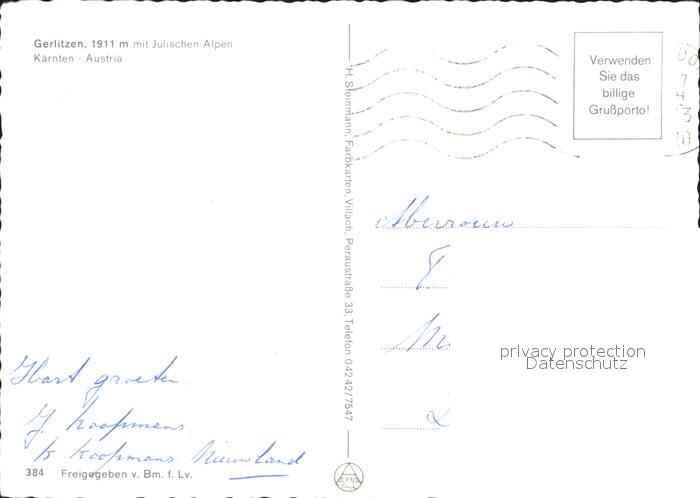 Gerlitzen, 1911 m mit Julischen Alpen
Kärnten - Austria
H. Steinmann, Farbkarten, Villach, Peraustraße 33, Telefon 0 42 42/7547
Verwenden
Sie das
billige
Grußporto!
privacy protection
Datenschutz
Hart groeten
J. Koopmans
K Koopmans Nieuwland
384 Freigegeben v. Bm. f. Lv.
ALPINA